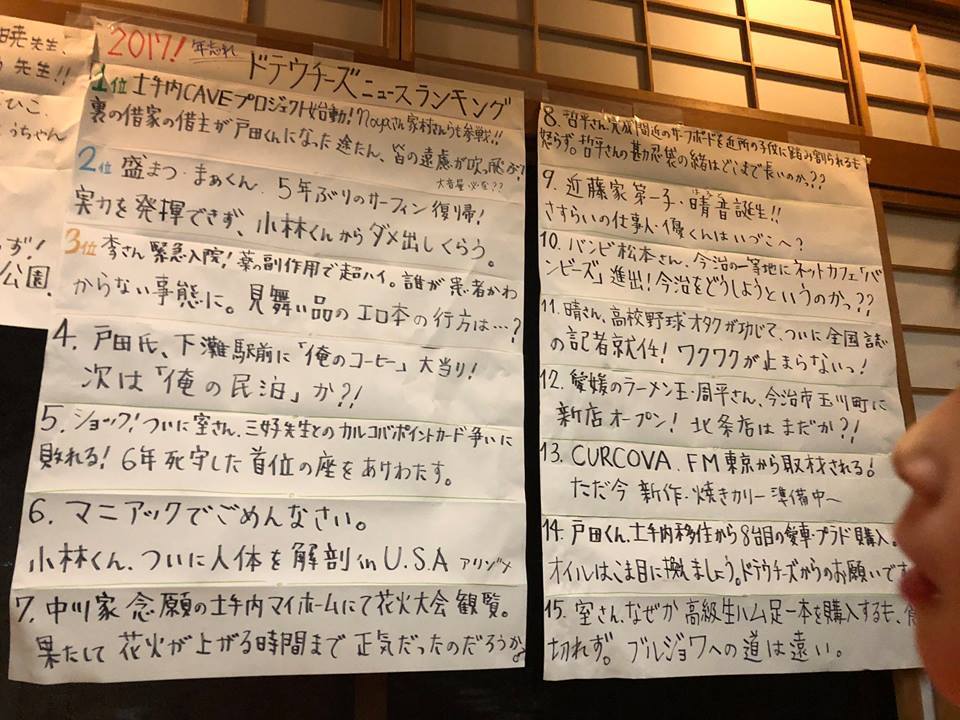 田暁先生、
先生!!
ひこ、
うちゃん
ず!
公園、
2017! 年忘れ ドテウチーズニュースランキング
1位 土手内CAVEプロジェクト始動! Noyaさん家村さんらも参戦!!
裏の借家の借主が戸田くんになった途たん、皆の遠慮が吹っ飛ぶ?
大音量必至??
2位 盛まつ・まぁくん、5年ぶりのサーフィン復帰!
実力を発揮できず、小林くんからダメ出しくらう。
3位 李さん緊急入院!薬の副作用で超ハイ。誰が患者かわ
からない事態に。見舞い品のエロ本の行方は…?
4. 戸田氏、下灘駅前に「俺のコーヒー」大当り!
次は「俺の民泊」か?!
5. ショック!ついに室さん、三好先生とのカルコバポイントカード争いに
敗れる! 6年死守した首位の座をあけわたす。
6. マニアックでごめんなさい。
小林くん、ついに人体を解剖 in U.S.A アリゾナ
7. 中川家 念願の土手内マイホームにて花火大会観覧。
果たして花火が上がる時間まで正気だったのだろうか?
8. 哲平さん、完成間近のサーフボードを近所の子供に踏み割られるも
怒らず。哲平さんの堪忍袋の緒はどこまで長いのか??
9. 近藤家第一子・晴音誕生!!
さすらいの仕事人・優くんはいづこへ?
10. バンビ松本さん、今治の一等地にネットカフェ「バン
ビーズ」進出!今治をどうしようというのかっ??
11. 晴さん、高校野球オタクが功じて、ついに全国誌
の記者就任! ワクワクが止まらないっ!
12. 愛媛のラーメン王・周平さん、今治市玉川町に
新店オープン! 北条店はまだか?!
13. CURCOVA. FM東京から取材される!
ただ今 新作・焼きカリー準備中〜
14. 戸田くん、土手内移住から8台目の愛車・プラド購入。
オイルはこま目に換えましょう。ドテウチーズからのお願いです
15. 室さん、なぜか高級生ハム足一本を購入するも、食
切れず。ブルジョワへの道は遠い。